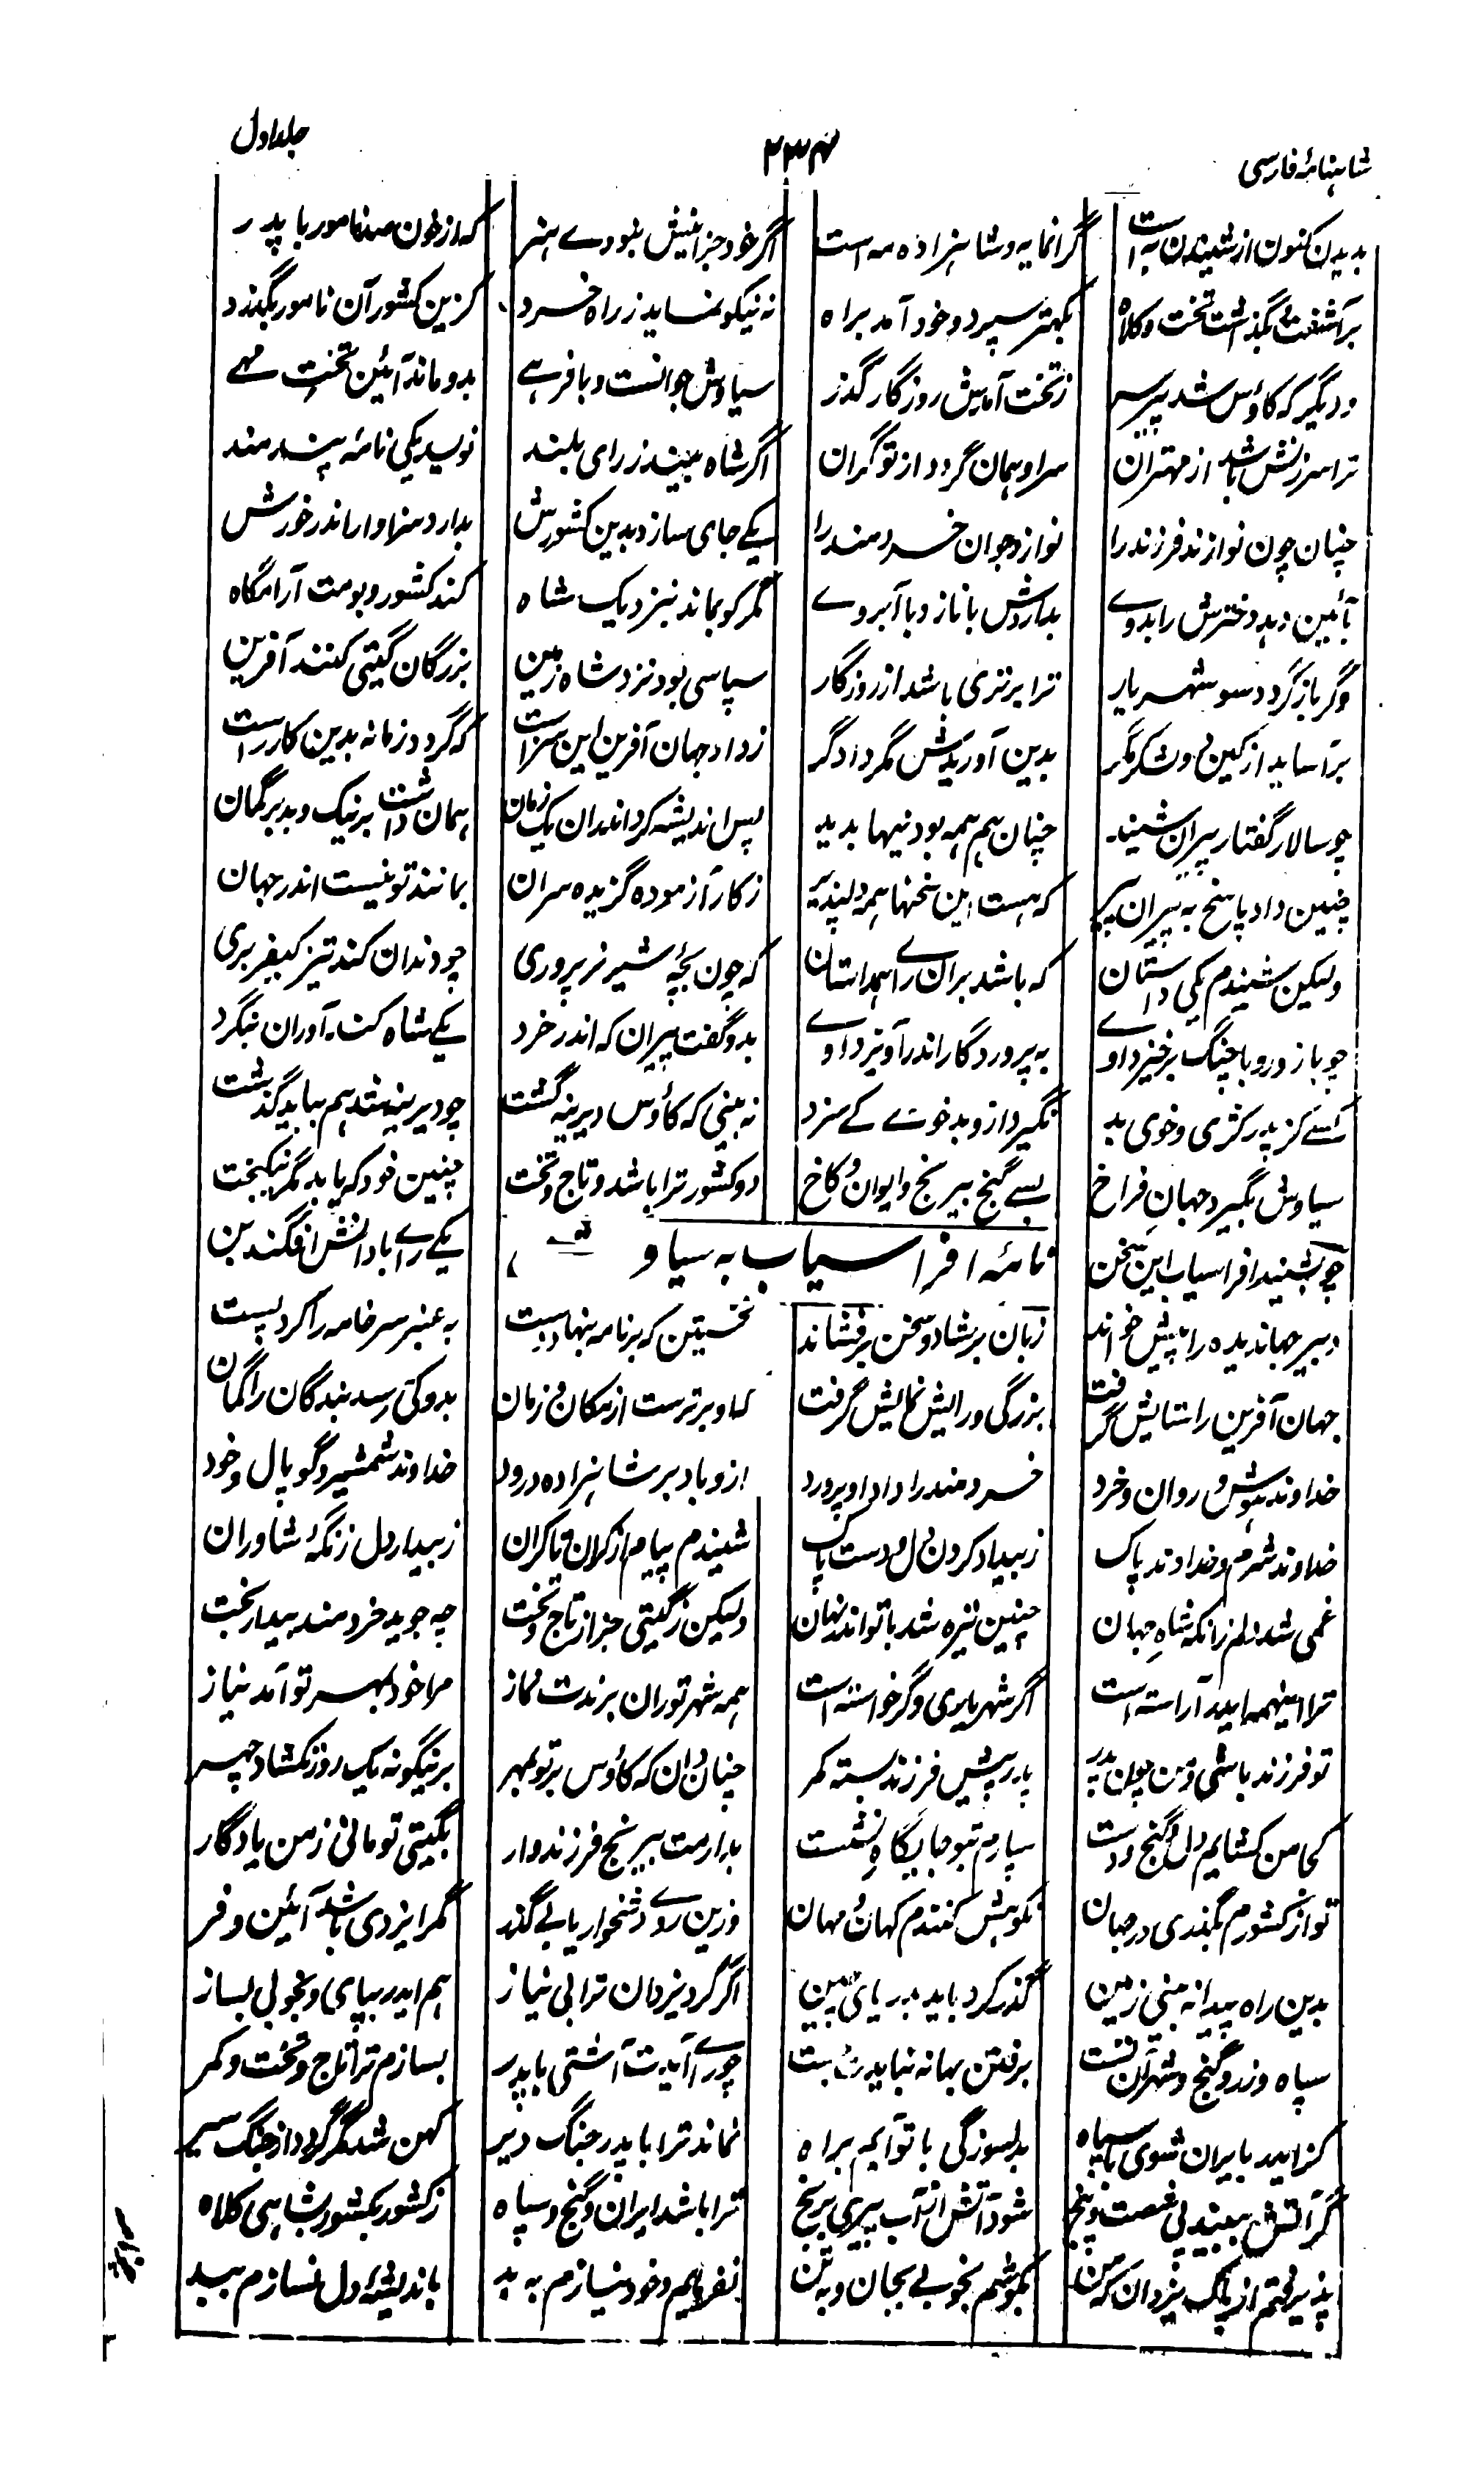 شاہنامۂ فارسی ۲۳۴ جلد اول
بدیدن کنون از شنیدن به است گرانمایه و شاہزاده مه است اگر خود جز اینش نبودے ہنر که از خون صد نامور با پدر
برآشفت بگذاشت تخت و کلاه بکهتر سپرد و خود آمد براه نه نیکو نماید ز راه خرد کزین کشور آن نامور بگذرد
و دیگر که کاؤس شد پیرسر ز تخت آمدیش روزگار گذر سیاوش جوانست و بافرہے بدو ماند آئین تخت مہے
ترا سرزنش باشد از مهتران سر او همان گردد از تو گران اگر شاه بیند ز رای بلند نویسد یکی نامۂ پندمند
چنان چون نوازند فرزند را نوازد جوان خردمند را یکے جای سازد بدین کشورش بدارد سزاوار اندر خورش
بآئین دہد دخترش را بدوے بداردش با ناز و با آبروے مگر کو بماند بنزدیک شاه کند کشور و بومت آرامگاه
وگر باز گردد سو شہریار ترا برتری باشد از روزگار سپاسی بود نزد شاه زمین بزرگان گیتی کنند آفرین
برآساید از کین دو لشکر مگر بدین آوریدش مگر دادگر ز داد جهان آفرین این سزاست که گردد زمانه بدین کار راست
چو سالار گفتار پیران شنید چنان هم همه بودنیها بدید پس اندیشه کرد اندران یک زمان همان داشت بر نیک و بد بر گمان
چنین داد پاسخ به پیران پیر که هست این سخنها همه دلپذیر ز کار آزموده گزیده سران بمانند تو نیست اندر جهان
ولیکن شنیدم یکی داستان که باشد بران رای همداستان که چون بچۂ شیر نر پروری چو دندان کند تیز کیفر بری
چو با زور و با چنگ برخیزد اوے به پروردگار اندر آویزد اوے بدو گفت پیران که اندر خرد یکے شاه کند آوران بنگرد
کسے کز پدر کژی و خوی بد نگیرد ازو بدخوئے کے سزد نه بینی که کاؤس دیرینه گشت چو دیرینه شد هم بباید گذشت
سیاوش بگیرد جهان فراخ بسے گنج بیرنج و ایوان و کاخ دو کشور ترا باشد و تاج و تخت چنین خود که یابد مگر نیکبخت
چو بشنید افراسیاب این سخن یکے رای با دانش افگند بن
نامۂ افراسیاب به سیاوش
دبیر جهاندیده را پیش خواند زبان برگشاد و سخن برفشاند نخستین که بر نامه بنهاد دست به عنبر سر خامه را کرد پست
جهان آفرین را ستایش گرفت بزرگی و رایش نمایش گرفت که او برترست از مکان و زمان بدو کی رسد بندگان را گمان
خداوند هوش و روان و خرد خردمند را داد او پرورد ازو باد بر شاہزاده درود خداوند شمشیر و گوپال و خود
خداوند شرم و خداوند پاک ز بیداد کردن دل و دست پاک شنیدم پیام از کران تا کران ز بیدار دل زنگۂ شاوران
غمی شد دلم زانکه شاهِ جهان چنین تیره شد با تو اندر نهان ولیکن ز گیتی جز از تاج و تخت چه جوید خردمند بیدار بخت
ترا اینهمه ایدر آراسته است اگر شهریاری وگر خواسته است همه شهر توران برندت نماز مرا خود بمهر تو آمد نیاز
تو فرزند باشی و من چون پدر پدر پیش فرزند بسته کمر چنان دان که کاؤس بر تو بمهر برینگونه یک روز نگشاد چهر
کجا من گشایم دل و گنج و دست سپارم بتو جایگاهِ نشست بدارمت بیرنج فرزندوار بگیتی تو مانی ز من یادگار
تو از کشورم بگذری در جهان نکوهش کنندم کهان و مهان وزین روے دشخوار یابی گذر مگر ایزدی باشد آئین و فر
بدین راه پیدا نه بینی زمین گذر کرد باید بدریای چین اگر کرد یزدان ترا بی نیاز هم ایدر بپای و بخوبی بساز
سپاه و زر و گنج و شهر آن تست برفتن بهانه نبایدت جست چو رای آیدت آشتی با پدر بسازم ترا تاج و تخت و کمر
کز ایدر بایران شوی با سپاه بدلسوزگی با تو آیم براه نماند ترا با پدر جنگ دیر کهن شد مگر گردد از جنگ سیر
گر آتش ببیند پی شصت و پنج شود آتش از آب پیری برنج ترا باشد ایران و گنج و سپاه ز کشور بکشور بشاهی کلاه
پذیرفتم از پاک یزدان که من بکوشم بخوبی بجان و بتن نفرمایم و خود نسازم به بد باندیشۂ دل نسازم ببد